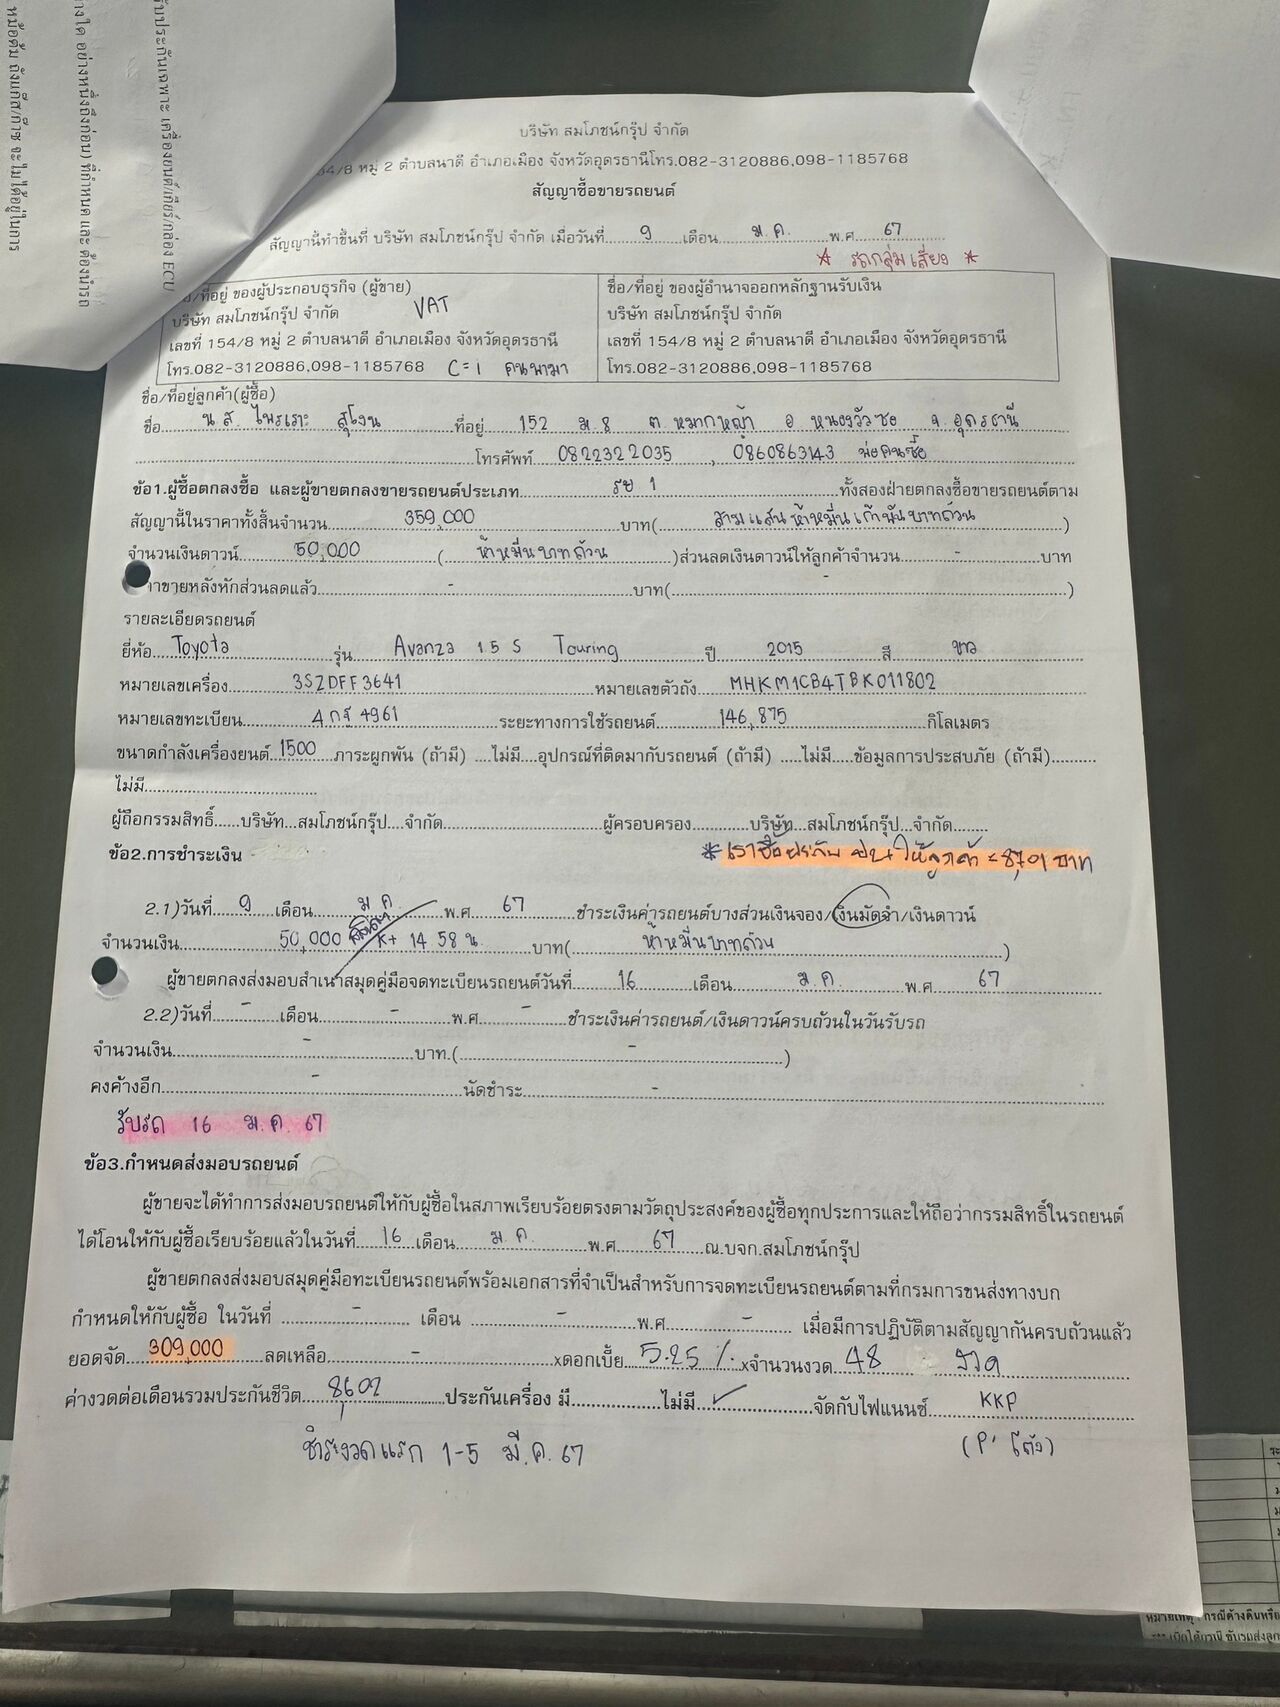 รับประกันเฉพาะ เครื่องยนต์/เกียร์/กล่อง ECU
อย่างหนึ่งถึงก่อน) ที่กำหนด และ ต้องนำรถ
หม้อต้ม ถังแก๊ส/ก๊าซ จะไม่ได้อยู่ในการ
บริษัท สมโภชน์กรุ๊ป จำกัด
54/8 หมู่ 2 ตำบลนาดี อำเภอเมือง จังหวัดอุดรธานีโทร.082-3120886,098-1185768
สัญญาซื้อขายรถยนต์
สัญญานี้ทำขึ้นที่ บริษัท สมโภชน์กรุ๊ป จำกัด เมื่อวันที่......9......เดือน......ม.ค.......พ.ศ......67......
* รถกลุ่มเสี่ยง *
/ที่อยู่ ของผู้ประกอบธุรกิจ (ผู้ขาย)
บริษัท สมโภชน์กรุ๊ป จำกัด VAT
เลขที่ 154/8 หมู่ 2 ตำบลนาดี อำเภอเมือง จังหวัดอุดรธานี
โทร.082-3120886,098-1185768 C=1
ชื่อ/ที่อยู่ ของผู้อำนาจออกหลักฐานรับเงิน
บริษัท สมโภชน์กรุ๊ป จำกัด
เลขที่ 154/8 หมู่ 2 ตำบลนาดี อำเภอเมือง จังหวัดอุดรธานี
โทร.082-3120886,098-1185768
ชื่อ/ที่อยู่ลูกค้า(ผู้ซื้อ)
ชื่อ......น.ส. ไพเราะ......ที่อยู่......152 ม.8 ต.หมากหญ้า อ หนองวัวซอ จ.อุดรธานี
......โทรศัพท์ 0822322035 , 0860863143 พ่อคนซื้อ
ข้อ1.ผู้ซื้อตกลงซื้อ และผู้ขายตกลงขายรถยนต์ประเภท......รย 1......ทั้งสองฝ่ายตกลงซื้อขายรถยนต์ตาม
สัญญานี้ในราคาทั้งสิ้นจำนวน......359,000......บาท(......สามแสนห้าหมื่นเก้าพันบาทถ้วน......)
จำนวนเงินดาวน์......50,000......(......ห้าหมื่นบาทถ้วน......)ส่วนลดเงินดาวน์ให้ลูกค้าจำนวน......-......บาท
าขายหลังหักส่วนลดแล้ว......-......บาท(......-......)
รายละเอียดรถยนต์
ยี่ห้อ...Toyota......รุ่น......Avanza 1.5 S Touring......ปี......2015......สี......ขาว......
หมายเลขเครื่อง......3SZDFF3641......หมายเลขตัวถัง......MHKM1CB4TBK011802......
หมายเลขทะเบียน......4 กฐ 4961......ระยะทางการใช้รถยนต์......146,875......กิโลเมตร
ขนาดกำลังเครื่องยนต์..1500...ภาระผูกพัน (ถ้ามี) ....ไม่มี....อุปกรณ์ที่ติดมากับรถยนต์ (ถ้ามี) .....ไม่มี.....ข้อมูลการประสบภัย (ถ้ามี)..........
ไม่มี......
ผู้ถือกรรมสิทธิ์......บริษัท...สมโภชน์กรุ๊ป....จำกัด......ผู้ครอบครอง......บริษัท...สมโภชน์กรุ๊ป...จำกัด........
ข้อ2.การชำระเงิน
*เราซื้อประกัน ให้ลูกค้า = 8,701 บาท
2.1)วันที่...9...เดือน......ม ค......พ.ศ......67......ชำระเงินค่ารถยนต์บางส่วนเงินจอง/เงินมัดจำ/เงินดาวน์
จำนวนเงิน......50,000 K+ 14.58 น.......บาท(......ห้าหมื่นบาทถ้วน......)
ผู้ขายตกลงส่งมอบสำเนาสมุดคู่มือจดทะเบียนรถยนต์วันที่......16......เดือน......ม.ค.......พ.ศ......67......
2.2)วันที่......-......เดือน......-......พ.ศ......-......ชำระเงินค่ารถยนต์/เงินดาวน์ครบถ้วนในวันรับรถ
จำนวนเงิน......-......บาท.(......-......)
คงค้างอีก......-......นัดชำระ......-......
รับรถ 16 ม.ค. 67
ข้อ3.กำหนดส่งมอบรถยนต์
ผู้ขายจะได้ทำการส่งมอบรถยนต์ให้กับผู้ซื้อในสภาพเรียบร้อยตรงตามวัตถุประสงค์ของผู้ซื้อทุกประการและให้ถือว่ากรรมสิทธิ์ในรถยนต์
ได้โอนให้กับผู้ซื้อเรียบร้อยแล้วในวันที่...16...เดือน......ม.ค.......พ.ศ......67......ณ.บจก.สมโภชน์กรุ๊ป
ผู้ขายตกลงส่งมอบสมุดคู่มือทะเบียนรถยนต์พร้อมเอกสารที่จำเป็นสำหรับการจดทะเบียนรถยนต์ตามที่กรมการขนส่งทางบก
กำหนดให้กับผู้ซื้อ ในวันที่ ......-...... เดือน ......-......พ.ศ......-...... เมื่อมีการปฏิบัติตามสัญญากันครบถ้วนแล้ว
ยอดจัด...309,000......ลดเหลือ......-......xดอกเบี้ย...5.25 %...xจำนวนงวด...48 งวด
ค่างวดต่อเดือนรวมประกันชีวิต...8,602......ประกันเครื่อง มี......ไม่มี...✓......จัดกับไฟแนนซ์......KKP......
ชำระงวดแรก 1-5 มี.ค. 67
(P' โต้ง)
หมายเหตุ : กรณีค้างคืนหรือ